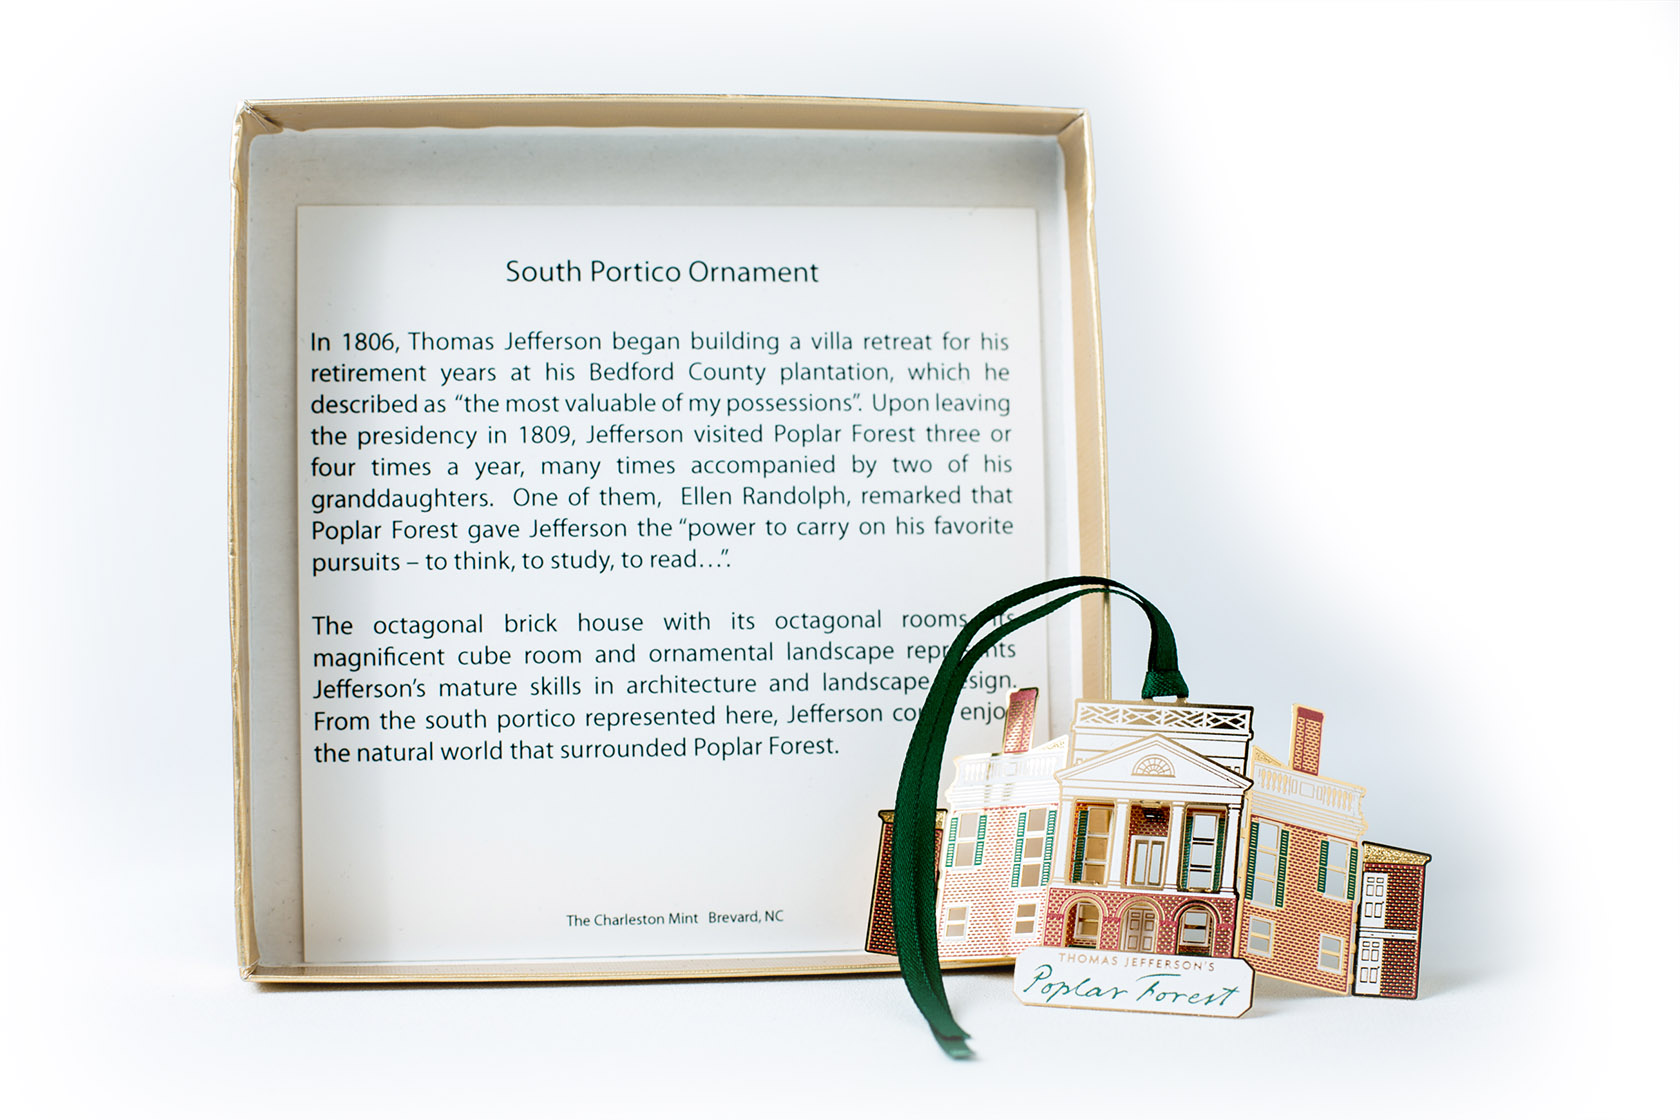 South Portico Ornament
In 1806, Thomas Jefferson began building a villa retreat for his
retirement years at his Bedford County plantation, which he
described as “the most valuable of my possessions”. Upon leaving
the presidency in 1809, Jefferson visited Poplar Forest three or
four times a year, many times accompanied by two of his
granddaughters. One of them, Ellen Randolph, remarked that
Poplar Forest gave Jefferson the “power to carry on his favorite
pursuits – to think, to study, to read…”.
The octagonal brick house with its octagonal rooms its
magnificent cube room and ornamental landscape represents
Jefferson’s mature skills in architecture and landscape design.
From the south portico represented here, Jefferson could enjoy
the natural world that surrounded Poplar Forest.
The Charleston Mint Brevard, NC
THOMAS JEFFERSON'S
Poplar Forest